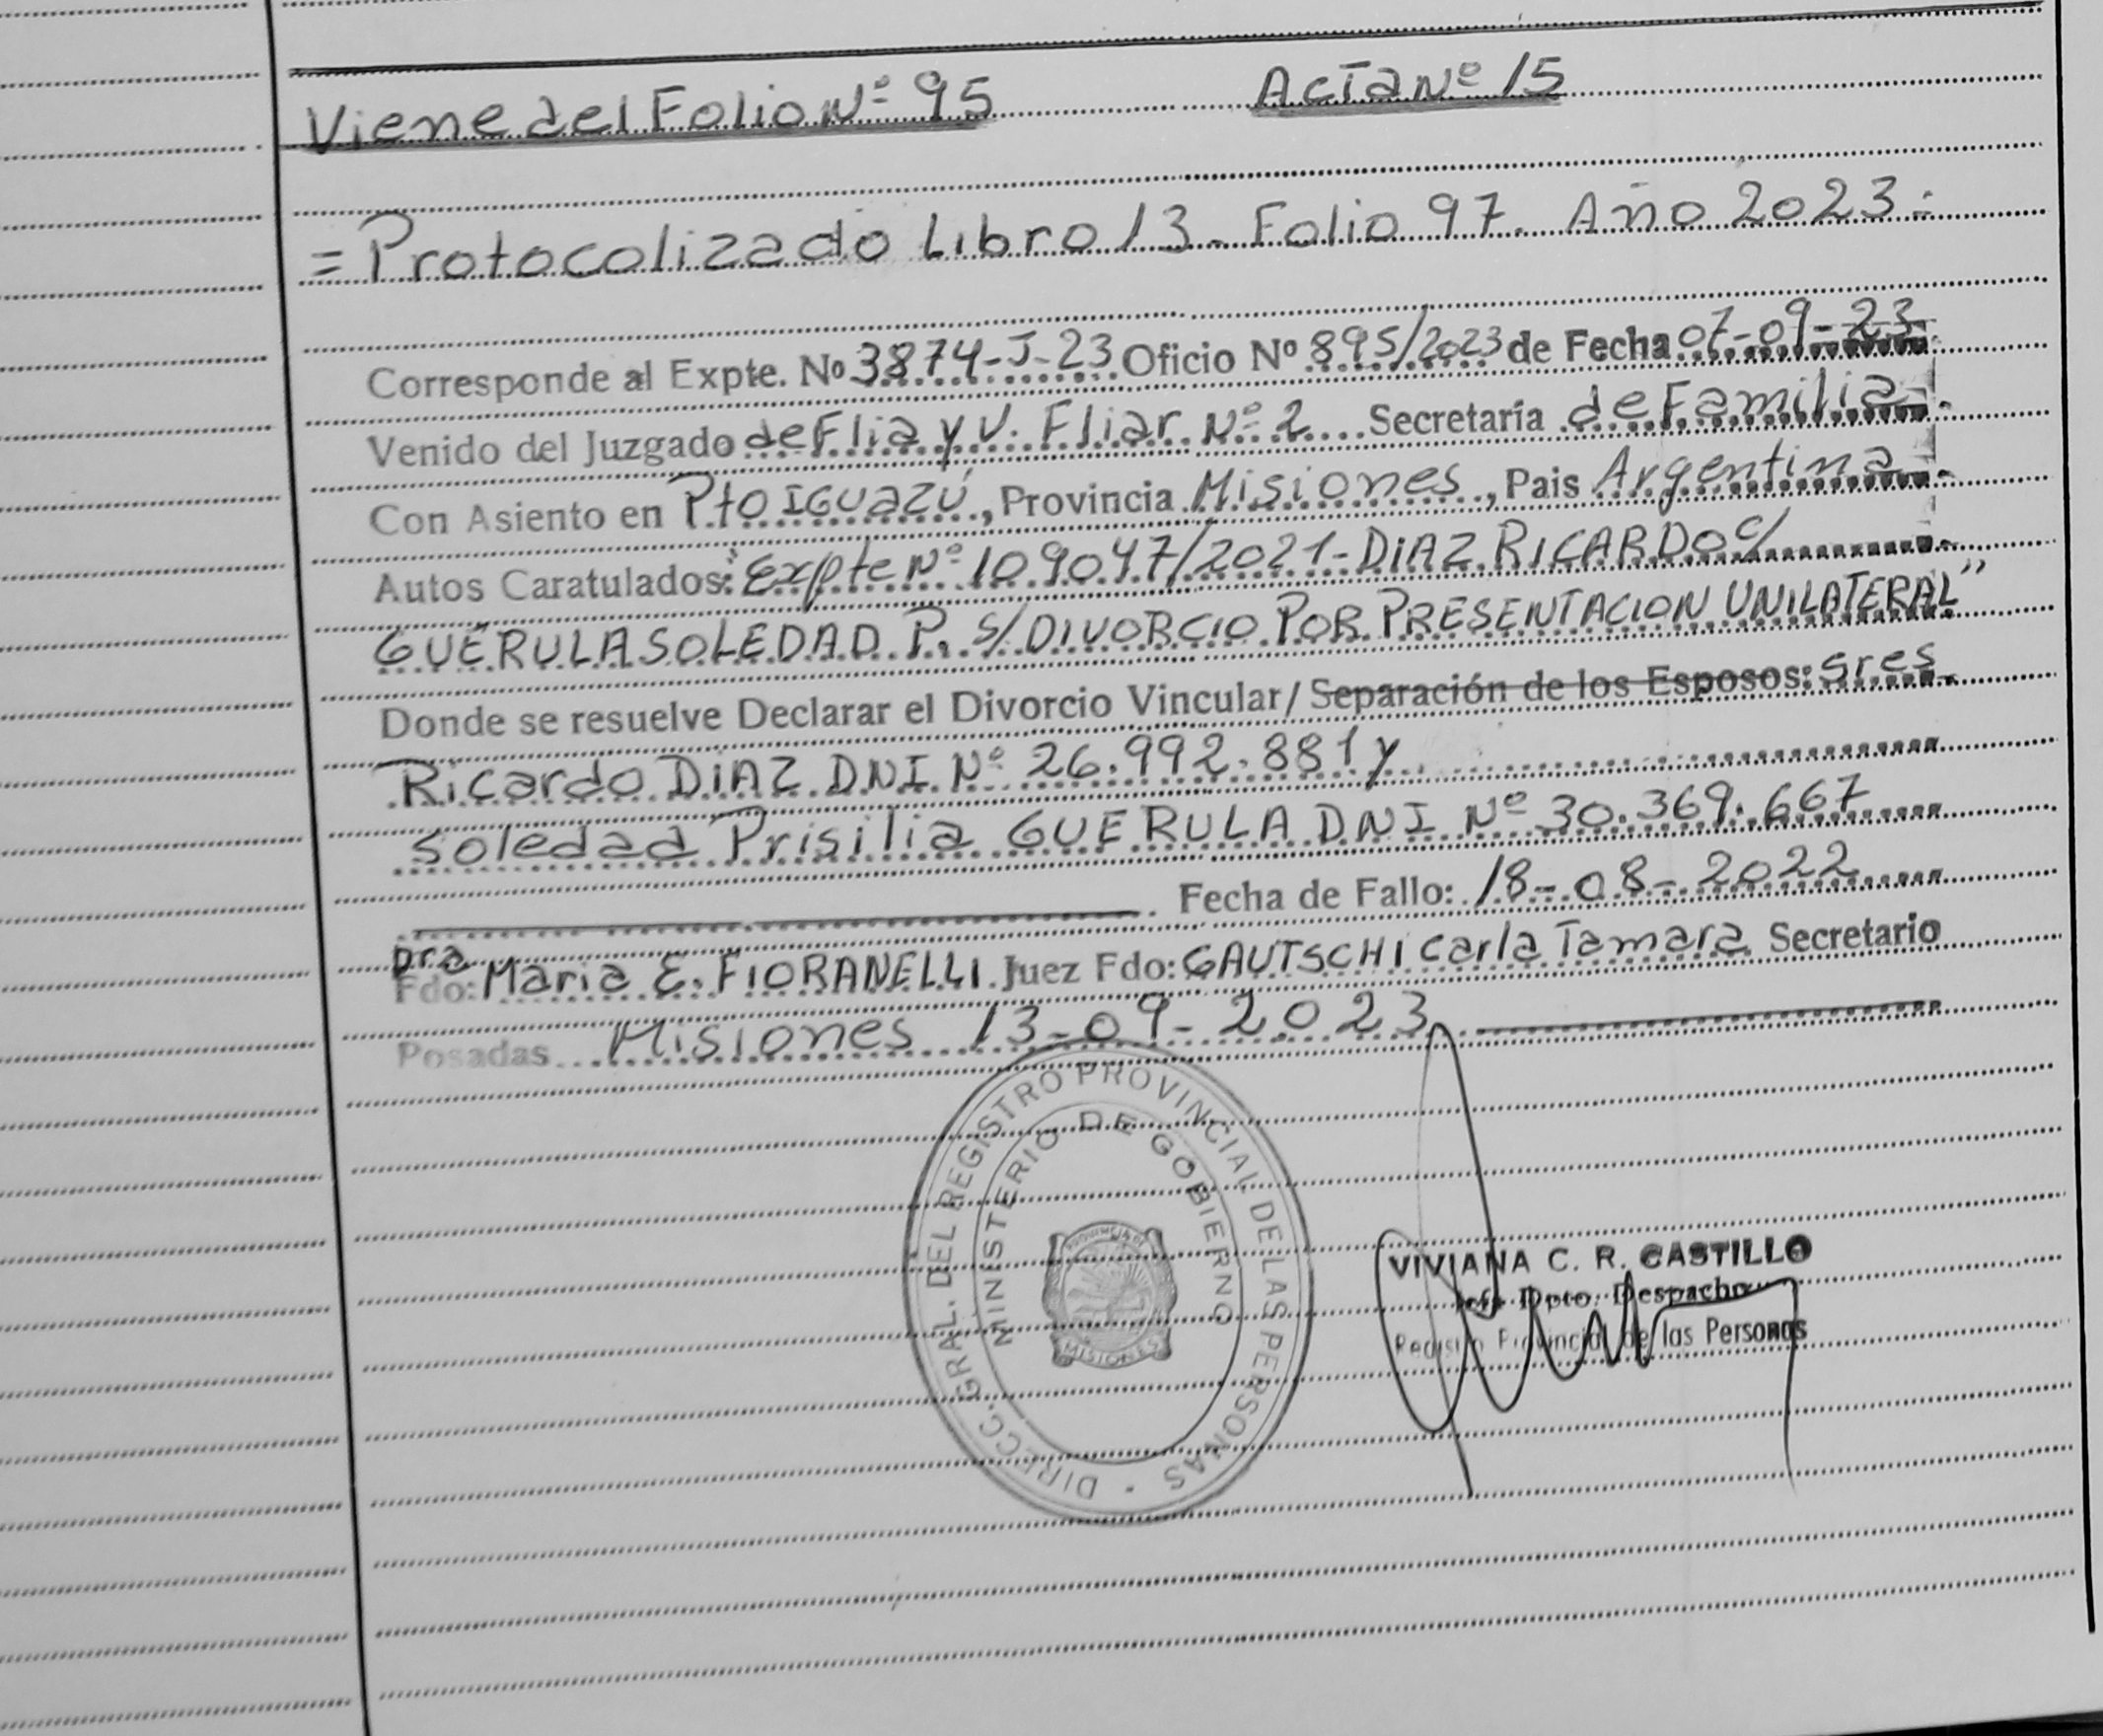 Viene del Folio Nº 95 Acta Nº 15
= Protocolizado Libro 13 - Folio 97. Año 2023 =
Corresponde al Expte. Nº 3874-J-23 Oficio Nº 895/2023 de Fecha 07-09-23
Venido del Juzgado de Flia y V. Fliar Nº 2 Secretaría de Familia
Con Asiento en Pto IGUAZÚ, Provincia Misiones, Pais Argentina
Autos Caratulados: "Expte Nº 109047/2021-DIAZ RICARDO c/
GUERULA SOLEDAD P. S/DIVORCIO POR PRESENTACION UNILATERAL"
Donde se resuelve Declarar el Divorcio Vincular/ Separación de los Esposos: Sres
Ricardo DIAZ DNI Nº 26.992.881 y
Soledad Prisilia GUERULA DNI Nº 30.369.667
Fecha de Fallo: 18-08-2022
Dra
Fdo: Maria E. FIORANELLI Juez Fdo: GAUTSCHI Carla Tamara Secretario
Posadas Misiones 13-09-2023
DIRECC. GRAL. DEL REGISTRO PROVINCIAL DE LAS PERSONAS
MINISTERIO DE GOBIERNO
PROVINCIA DE
MISIONES
VIVIANA C. R. CASTILLO
Jefe Dpto. Despacho
Registro Provincial de las Personas